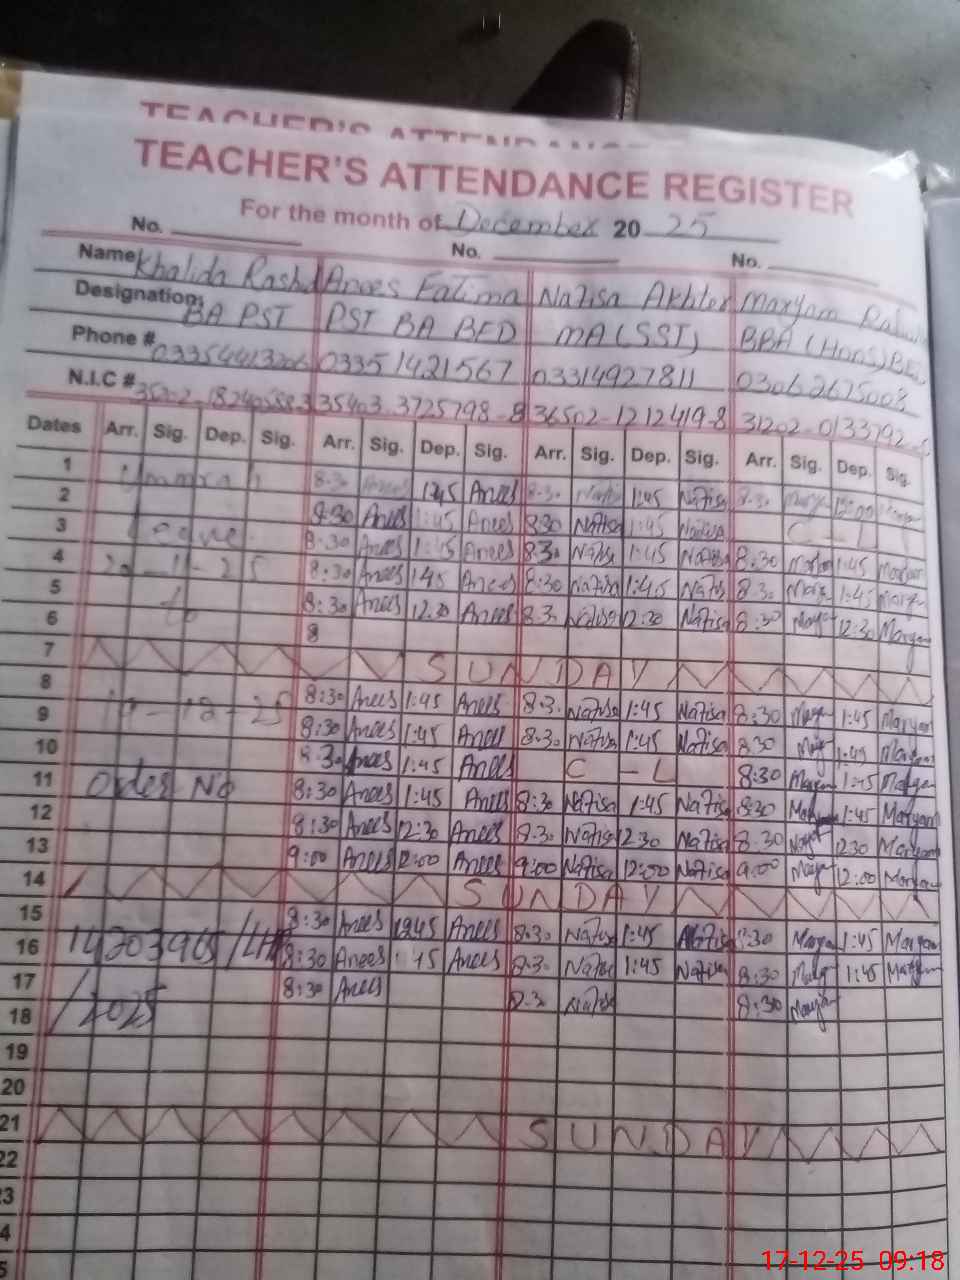 TEACHER'S ATTENDANCE
TEACHER'S ATTENDANCE REGISTER
For the month of December 20 25
No. No. No.
Name Khalida Rashd Anees Fatima Nafisa Akhter Maryam
Designation: BA PST PST BA BED MA (SST) BBA (Hons) BEd
Phone # 0335 1421567 03314927811 03062675008
N.I.C # 35403-3725798-8 36502-1212419-8
Dates Arr. Sig. Dep. Sig. Arr. Sig. Dep. Sig. Arr. Sig. Dep. Sig. Arr. Sig. Dep. Sig.
1 Ummrah 8:30 Anees 1:45 Anees 8:30 Nafisa 1:45 Nafisa 8:30
2 Leave 8:30 Anees 1:45 Anees 8:30 Nafisa 1:45 Nafisa C - L
3 8:30 Anees 1:45 Anees 8:30 Nafisa 1:45 Nafisa 8:30 Maryam 1:45 Maryam
4 8:30 Anees 1:45 Anees 8:30 Nafisa 1:45 Nafisa 8:30 Maryam 1:45 Maryam
5 to 8:30 Anees 12:30 Anees 8:30 Nafisa 12:30 Nafisa 8:30 Maryam 12:30 Maryam
6 8
7 SUNDAY
8 8:30 Anees 1:45 Anees 8:30 Nafisa 1:45 Nafisa 8:30 Maryam 1:45 Maryam
9 8:30 Anees 1:45 Anees 8:30 Nafisa 1:45 Nafisa 8:30 Maryam 1:45 Maryam
10 8:30 Anees 1:45 Anees C - L 8:30 Maryam 1:45 Maryam
11 Order No 8:30 Anees 1:45 Anees 8:30 Nafisa 1:45 Nafisa 8:30 Maryam 1:45 Maryam
12 8:30 Anees 12:30 Anees 8:30 Nafisa 12:30 Nafisa 8:30 Maryam 12:30 Maryam
13 9:00 Anees 12:00 Anees 9:00 Nafisa 12:00 Nafisa 9:00 Maryam 12:00 Maryam
14 SUNDAY
15 8:30 Anees 1245 Anees 8:30 Nafisa 1:45 Nafisa 8:30 Maryam 1:45 Maryam
16 8:30 Anees 1:45 Anees 8:30 Nafisa 1:45 Nafisa 8:30 Maryam 1:45 Maryam
17 /2025 8:30 Anees 8:30 Nafisa 8:30 Maryam
18
19
20
21 SUNDAY
22
23
4
5
17-12-25 09:18